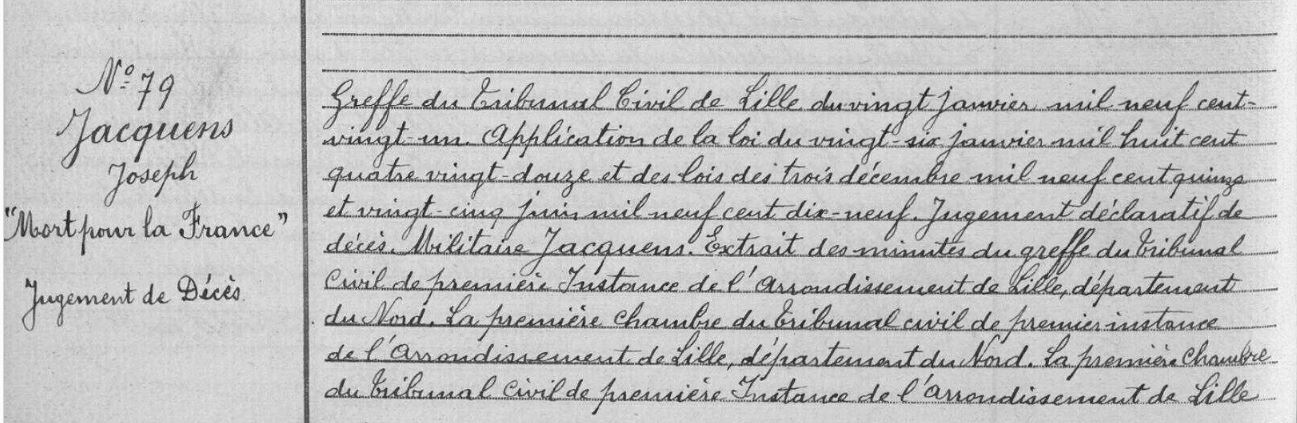 N° 79
Jacquens
Joseph
"Mort pour la France"
Jugement de Décès
Greffe du Tribunal Civil de Lille du vingt janvier mil neuf cent-
vingt-un. Application de la loi du vingt-six janvier mil huit cent
quatre vingt-douze et des lois des trois décembre mil neuf cent quinze
et vingt-cinq juin mil neuf cent dix-neuf. Jugement déclaratif de
décès. Militaire Jacquens. Extrait des minutes du greffe du Tribunal
Civil de première Instance de l'Arrondissement de Lille, département
du Nord. La première chambre du Tribunal civil de premier instance
de l'Arrondissement de Lille, département du Nord. La première Chambre
du Tribunal Civil de première Instance de l'Arrondissement de Lille